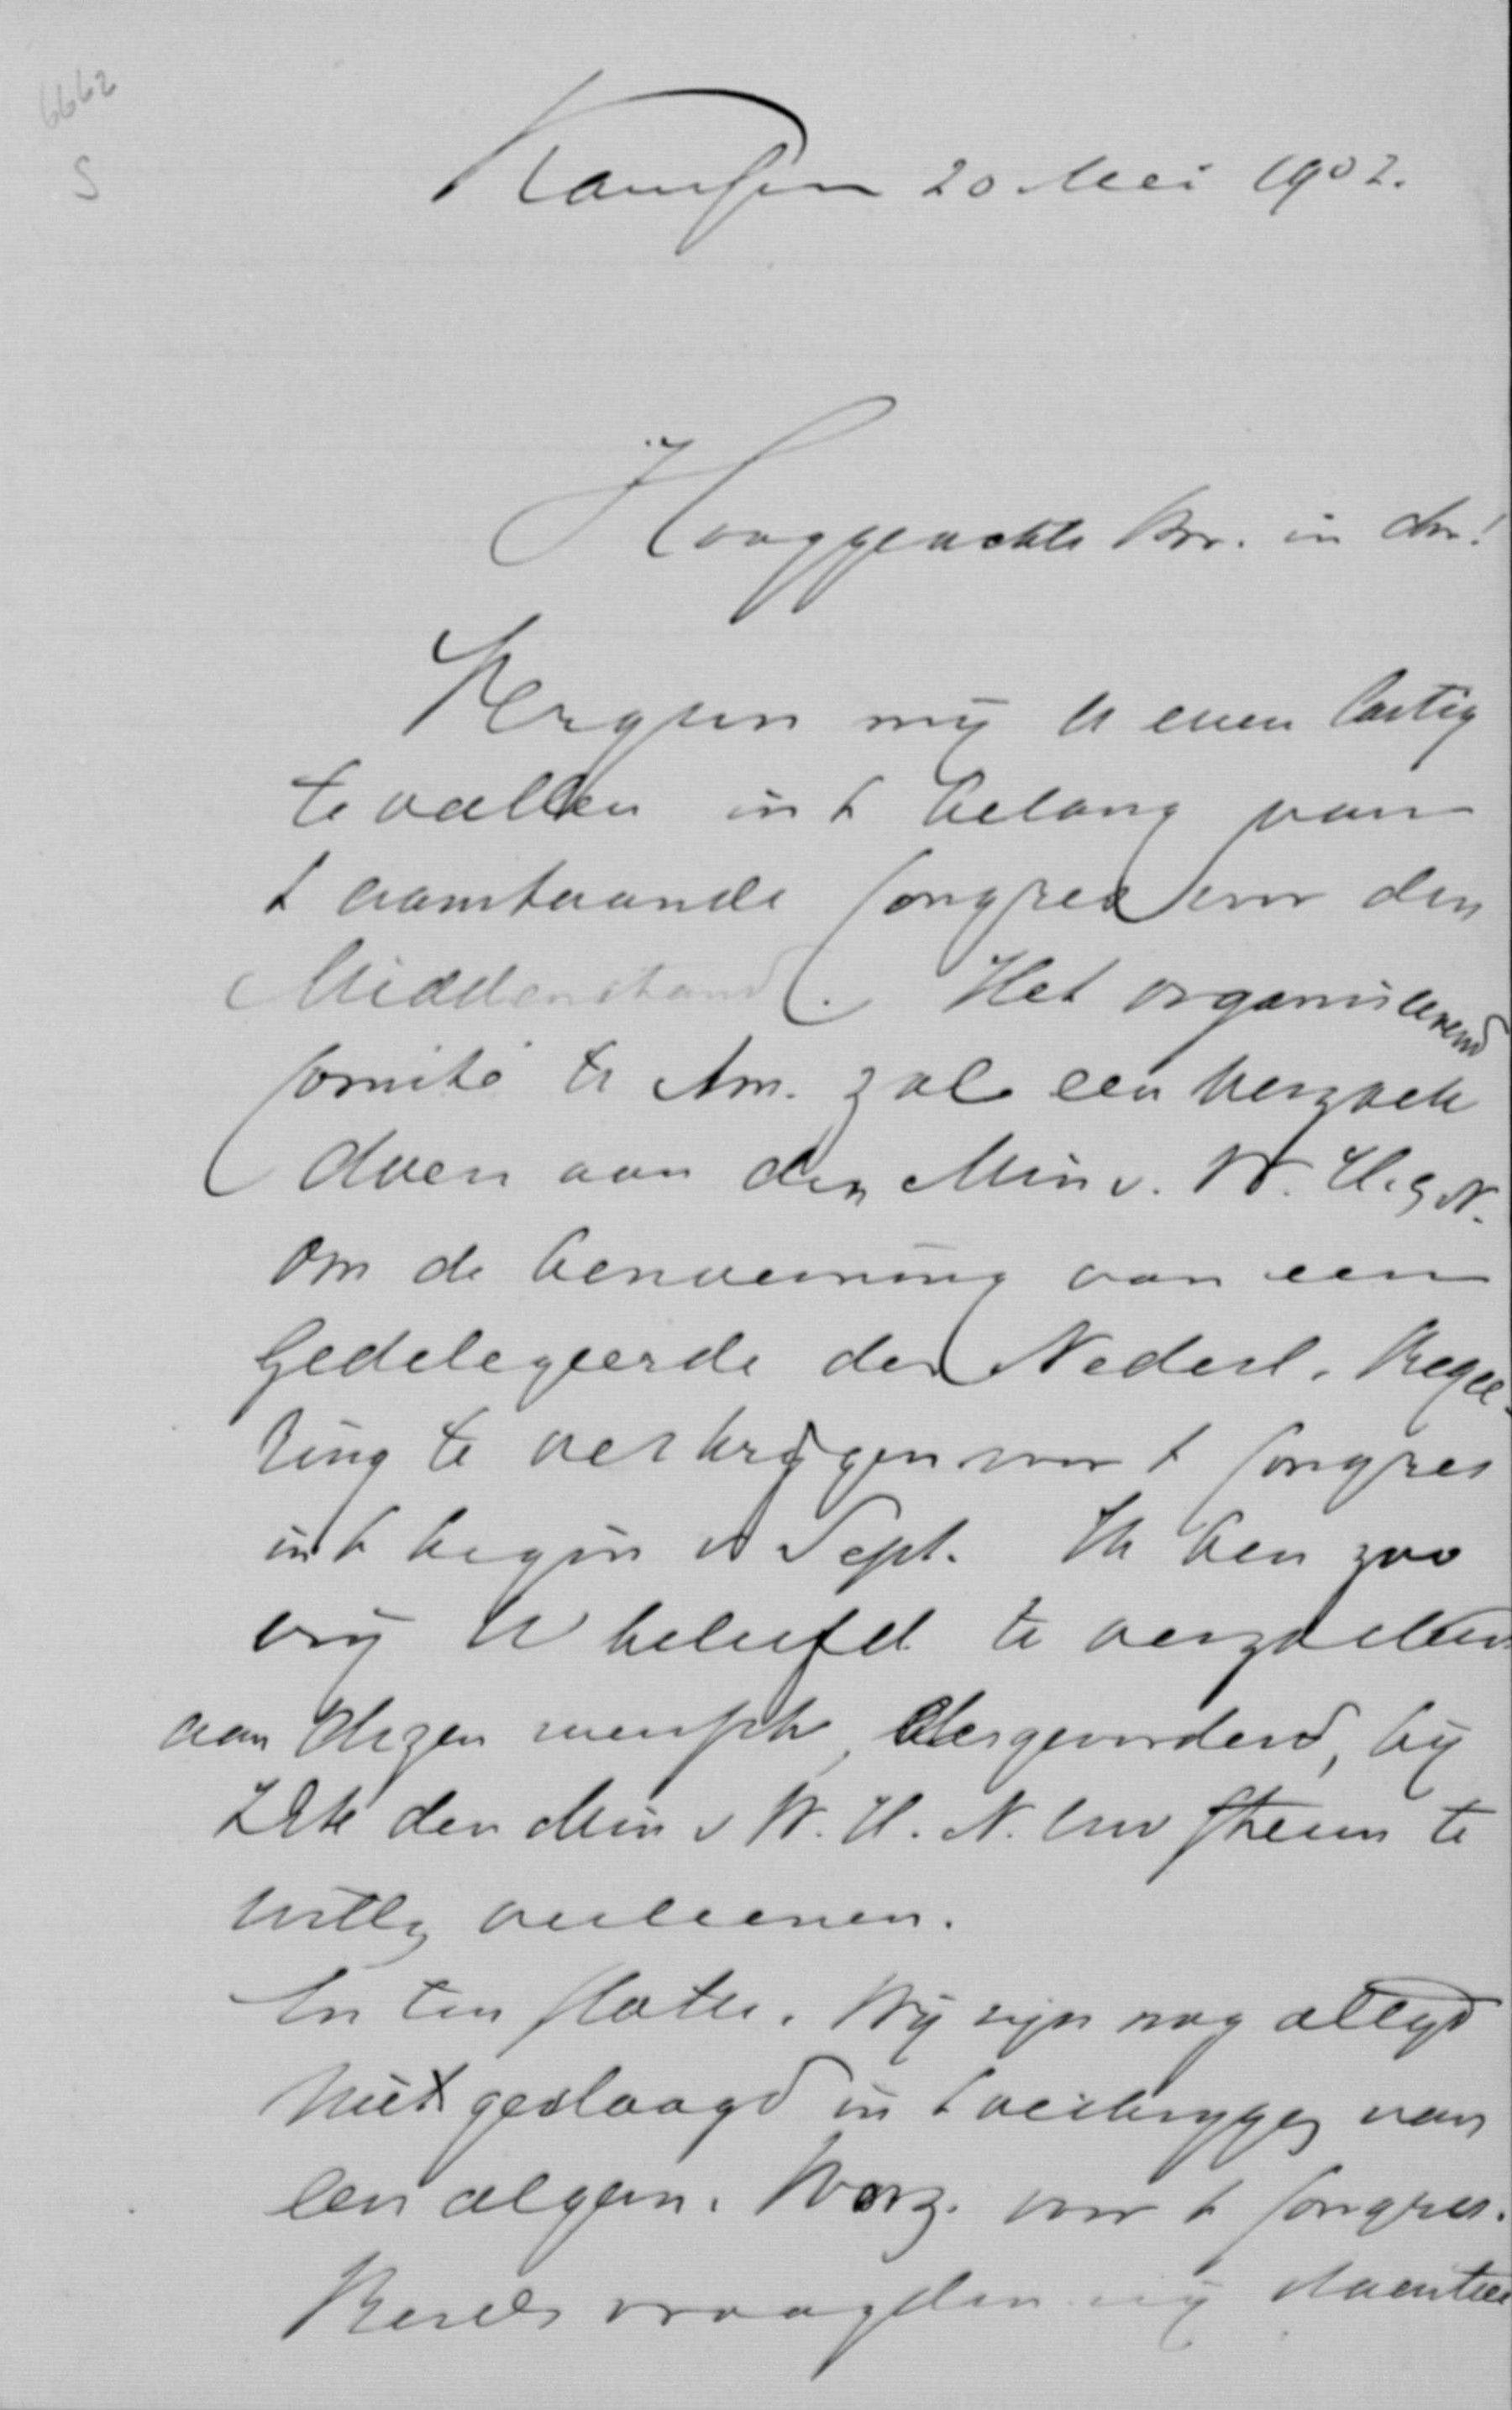 6662
S
Kampen 20 Mei 1902.
Hooggeachte Br. in Chr.!
Vergun mij U even lastig
te vallen in 't belang van
't aanstaande Congres voor den
Middenstand. Het organiseerend
Comité te Am. zal een verzoek
doen aan den Min v. W. H. & N.
om de benoeming van een
Gedelegeerde der Nederl. Regee-
ring te verkrijgen voor 't Congres
in 't begin v Sept. Ik ben zoo
vrij U beleefd te verzoeken
aan dezen wensch, desgevorderd, bij
ZExc den Min v W. H. N. Uw steun te
willen verleenen.
En ten slotte. Wij zijn nog altijd
niet geslaagd in 't verkrijgen van
een algem. Voorz. voor 't Congres.
Reeds vraagden wij